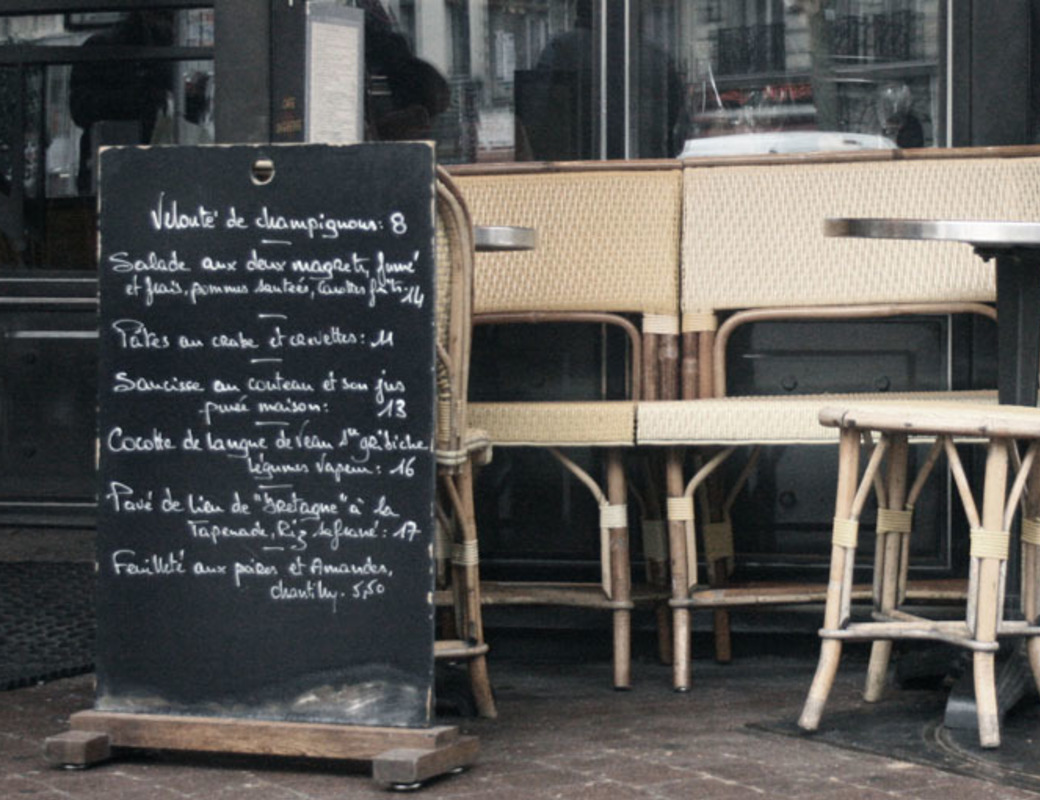 Velouté de champignons: 8
Salade aux deux magrets, fumé
et frais, pommes sautées, carottes : 14
Pâtes au crabe et crevettes: 11
Saucisse au couteau et son jus
purée maison: 13
Cocotte de langue de Veau gribiche
légumes vapeur: 16
Pavé de lieu de "Bretagne" à la
Tapenade, Riz safrané: 17
Feuilleté aux poires et Amandes,
chantilly. 5,50